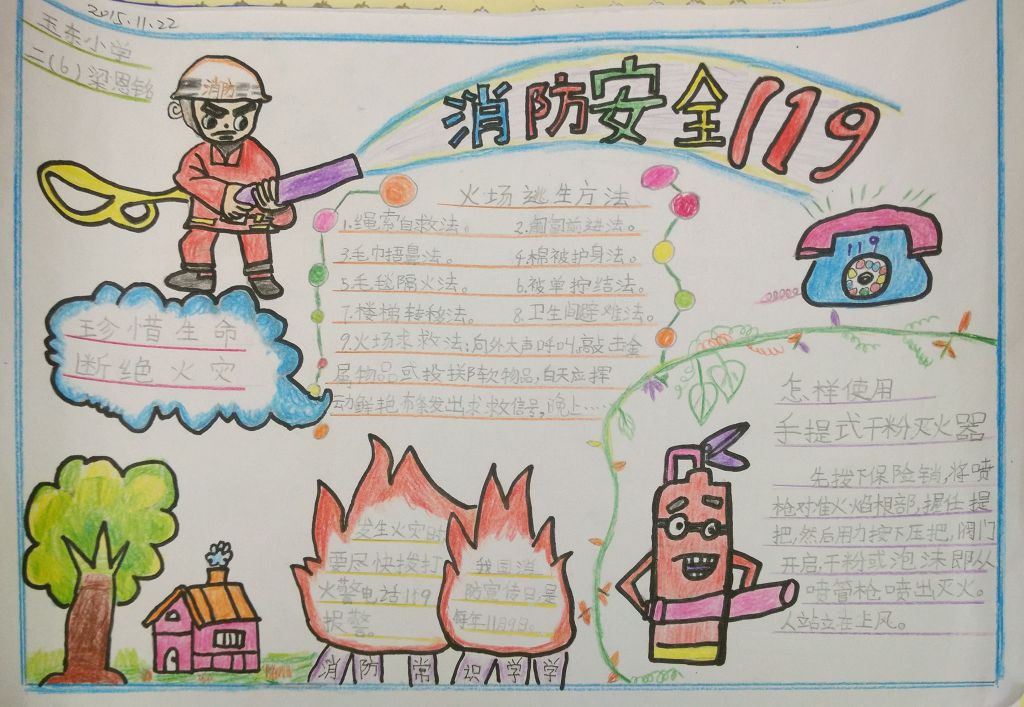 2015.11.22
玉东小学
二(6)梁恩铭
消防
消防安全119
火场逃生方法
1.绳索自救法。 2.匍匐前进法。
3.毛巾捂鼻法。 4.棉被护身法。
5.毛毯隔火法。 6.被单拧结法。
7.楼梯转移法。 8.卫生间避难法。
9.火场求救法:向外大声呼叫,敲击金
属物品或投掷软物品,白天应挥
动鲜艳布条发出求救信号,晚上……
珍惜生命
断绝火灾
119
怎样使用
手提式干粉灭火器
先拨下保险销,将喷
枪对准火焰根部,握住提
把,然后用力按下压把,阀门
开启,干粉或泡沫即从
喷管枪喷出灭火。
人站立在上风。
发生火灾时
要尽快拨打
火警电话119
报警。
我国消
防宣传日是
每年11月9日。
消防常识学学